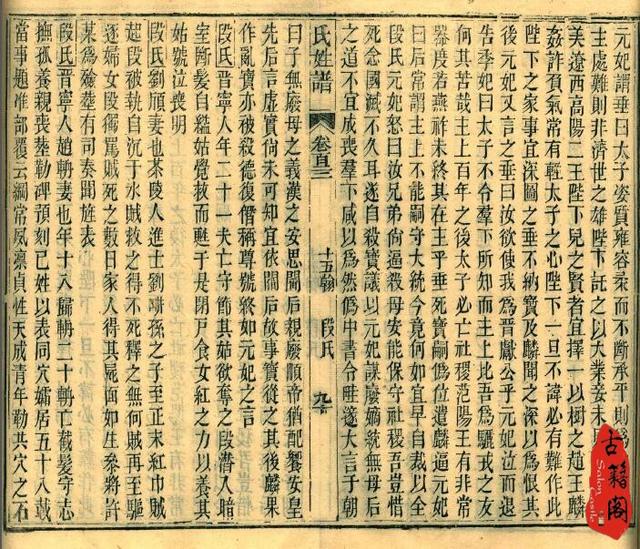 元妃謂垂曰太子姿質雍容柔而不斷承平則爲
主處難則非濟世之雄陛下託之以大業妾未見
美遼西高陽二王陛下兒之賢者宜擇一以樹之趙王麟
姦詐負氣常有輕太子之心陛下一旦不諱必有難作此
陛下之家事宜深圖之垂不納寶及麟聞之深以爲恨其
後元妃又言之垂曰汝欲使我爲晉獻公乎元妃泣而退
告季妃曰太子不令羣下所知而主上比吾爲驪戎之女
何其苦哉主上百年之後太子必亡社稷范陽王有非常
器度若燕祚未終其在王乎垂死寶嗣僞位遣麟逼元妃
曰后常謂主上不能嗣守大統今竟何如宜早自裁以全
段氏元妃怒曰汝兄弟尚逼殺母安能保守社稷吾豈惜
死念國滅不久耳遂自殺寶議以元妃謀廢嫡統無母后
之道不宜成喪羣下咸以爲然僞中書令眭邃大言于朝
氏姓譜 卷百三 十五翰 段氏 九十
曰子無廢母之義漢之安思閻后親廢順帝猶配饗安皇
先后言虛實尚未可知宜依閻后故事寶從之其後麟果
作亂寶亦被殺德復僭稱尊號終如元妃之言
段氏晉寧人年二十一夫亡守節其姑欲奪之段潛入暗
室斷髮自縊姑覺救而甦于是閉戸食女紅之力以養其
姑號泣喪明
段氏劉頎妻也茶陵人進士劉畊孫之子至正末紅巾賊
起段被執自沉于水賊救之得不死釋之無何賊再至驅
逐婦女段獨罵賊死之數日家人得其屍面如生參將許
某爲殮塟有司奏聞旌表
段氏晉寧人趙軿妻也年十八歸軿二十軿亡截髮守志
撫孤養親喪塟勒碑預刻己姓以表同穴孀居五十八載
當事題准部覆云綱常夙凜貞性天成靑年勒共穴之石
古籍阁